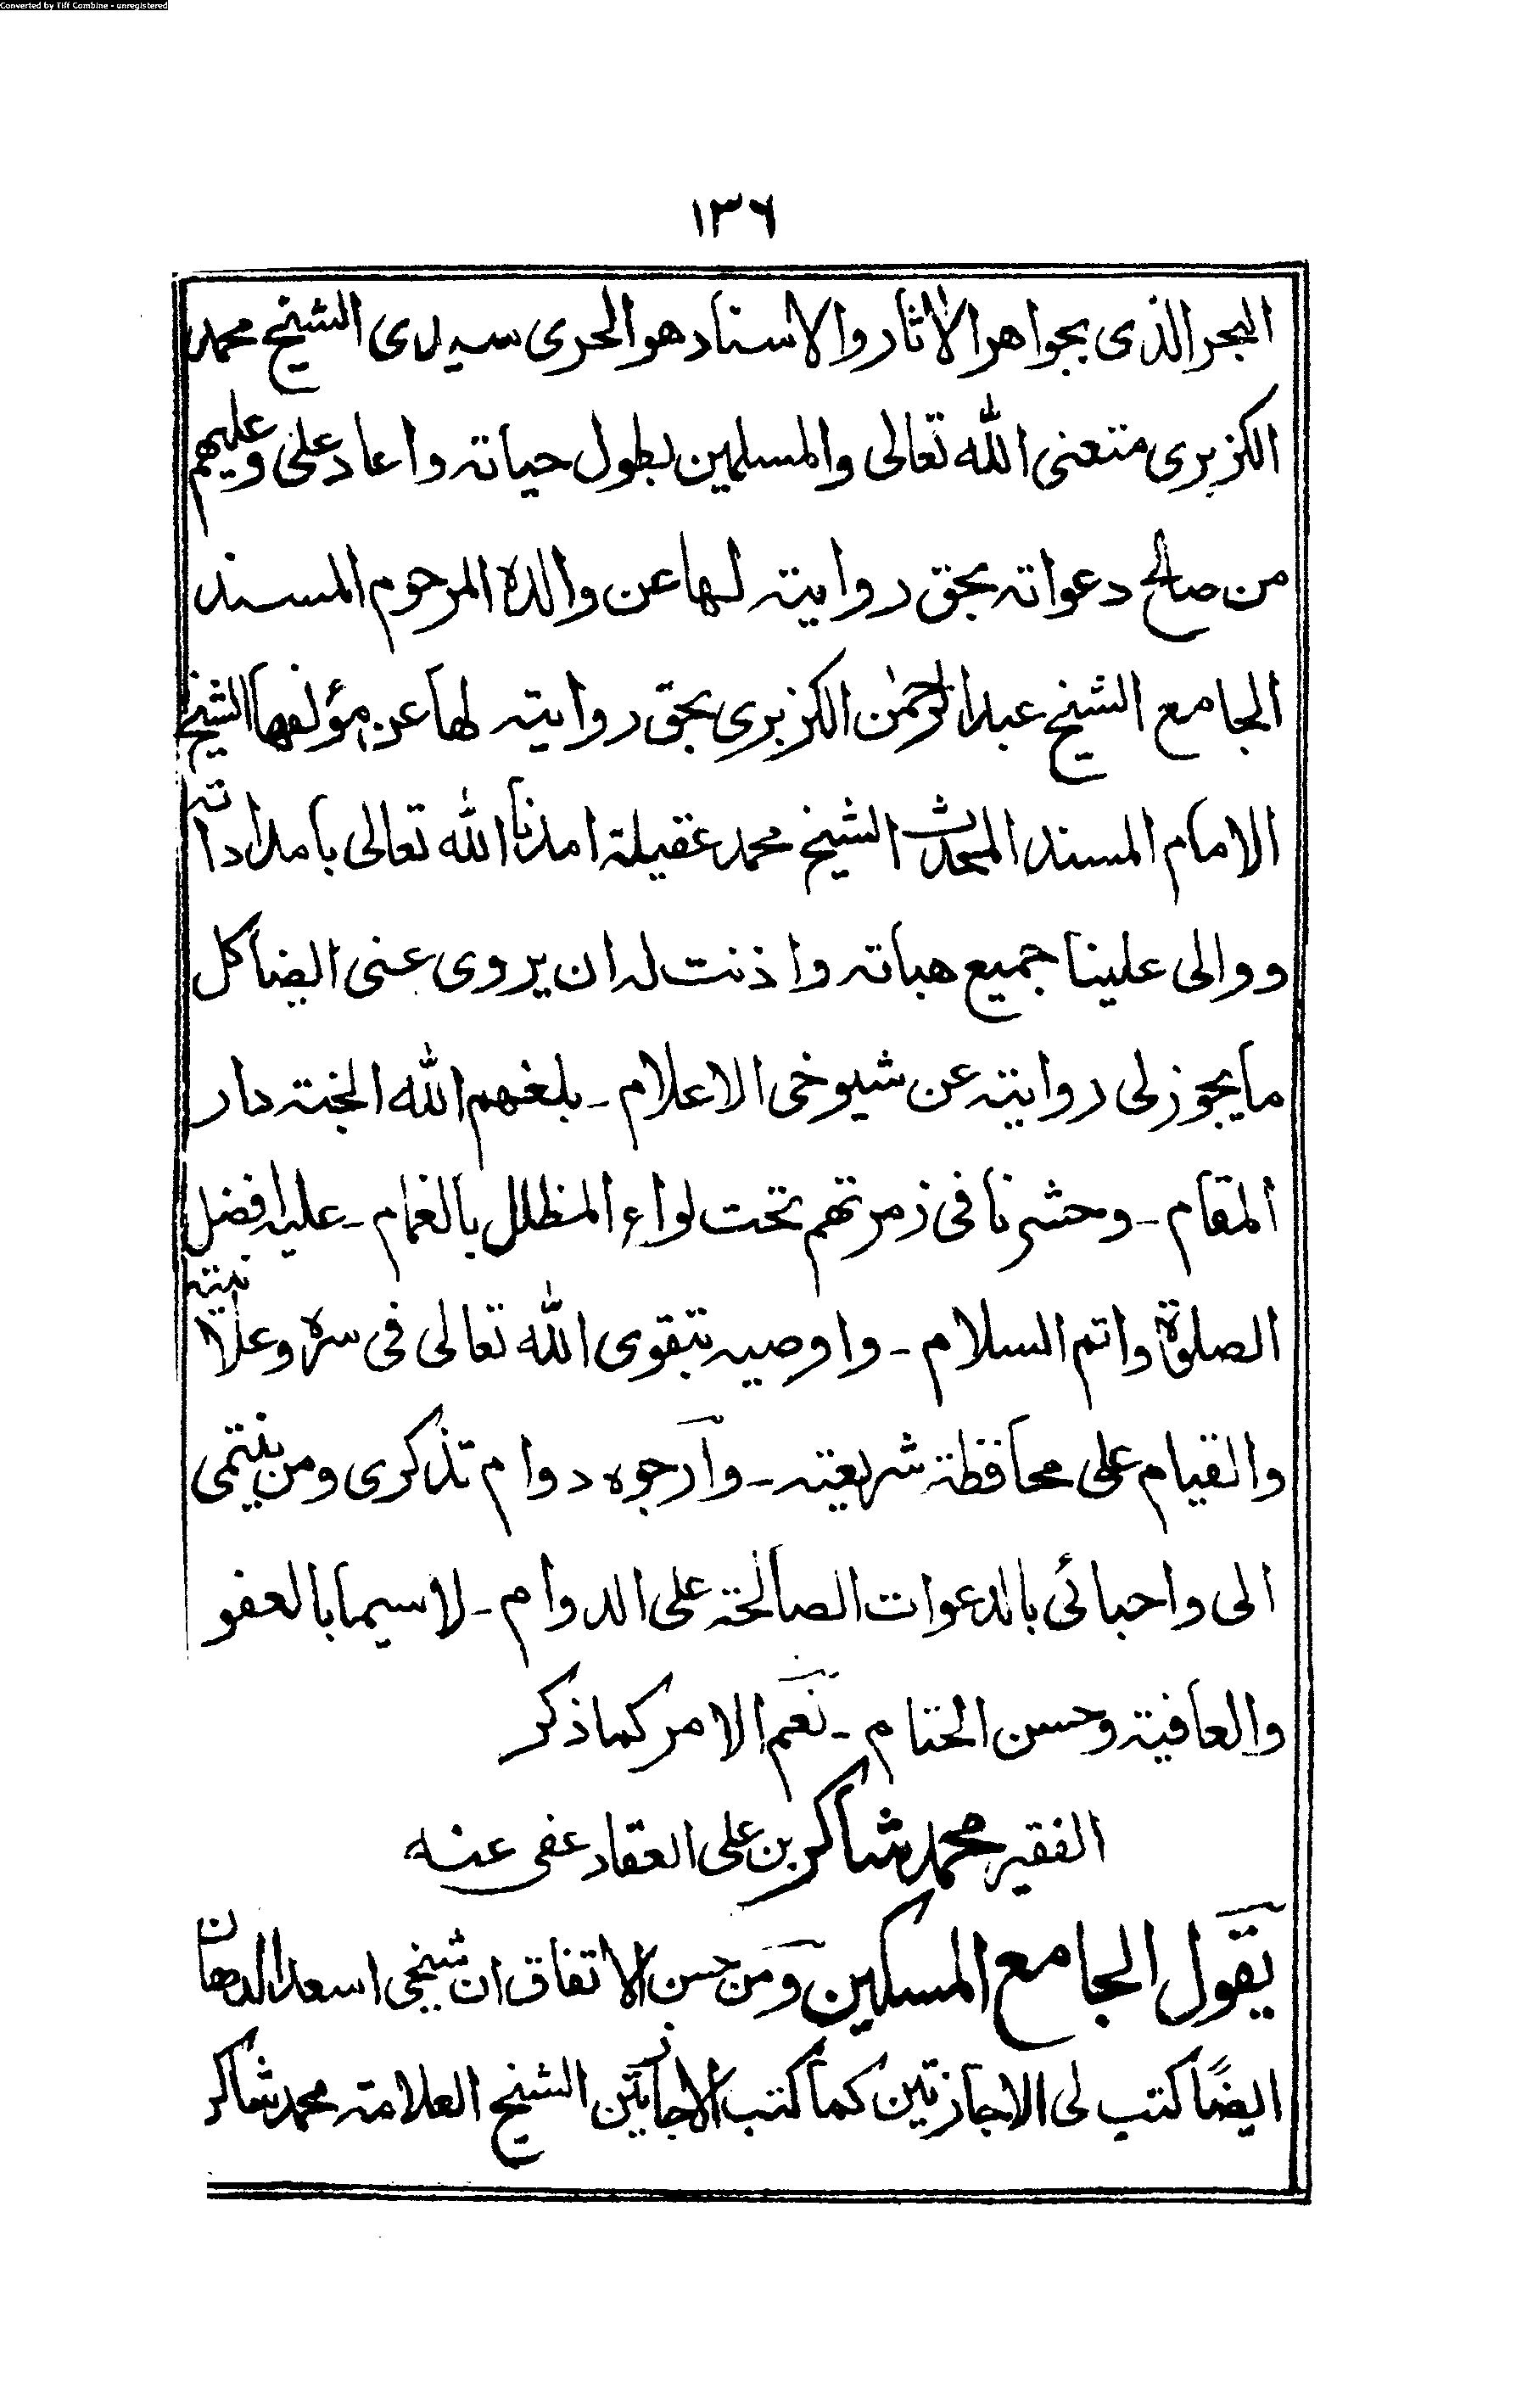 Converted by Tiff Combine - unregistered
١٣٦
البحر الذى بجواهر الاثار والاسناد هو الحرى سيدى الشيخ محمد
الكزبرى متعنى الله تعالى والمسلمين بطول حياته واعاد على وعليهم
من صالح دعواته بحق روايته لها عن والده المرحوم المسند
الجامع الشيخ عبد الرحمٰن الكزبرى بحق روايته لها عن مؤلفها الشيخ
الامام المسند المحدث الشيخ محمد عقيلة امدنا الله تعالى باماداته
ووالى علينا جميع هباته واذنت له ان يروى عنى ايضا كل
ما يجوز لى روايته عن شيوخى الاعلام ـ بلغهم الله الجنة دار
المقام ـ وحشرنا فى زمرتهم تحت لواء المظلل بالغمام ـ عليه افضل
الصلوٰة واتم السلام ـ واوصيه بتقوى الله تعالى فى سره وعلانيته
والقيام على محافظة شريعته ـ وارجوه دوام تذكرى ومن ينتمى
الى واحبائى بالدعوات الصالحة على الدوام ـ لاسيما بالعفو
والعافية وحسن الختام ـ نعم الامر كما ذكر
الفقير محمد شاكر بن على العقاد عفى عنه
يقول الجامع المسكين ومن حسن الاتفاق ان شيخى اسعد الدهان
ايضًا كتب لى الاجازتين كما كتب الاجازتين الشيخ العلامة محمد شاكر